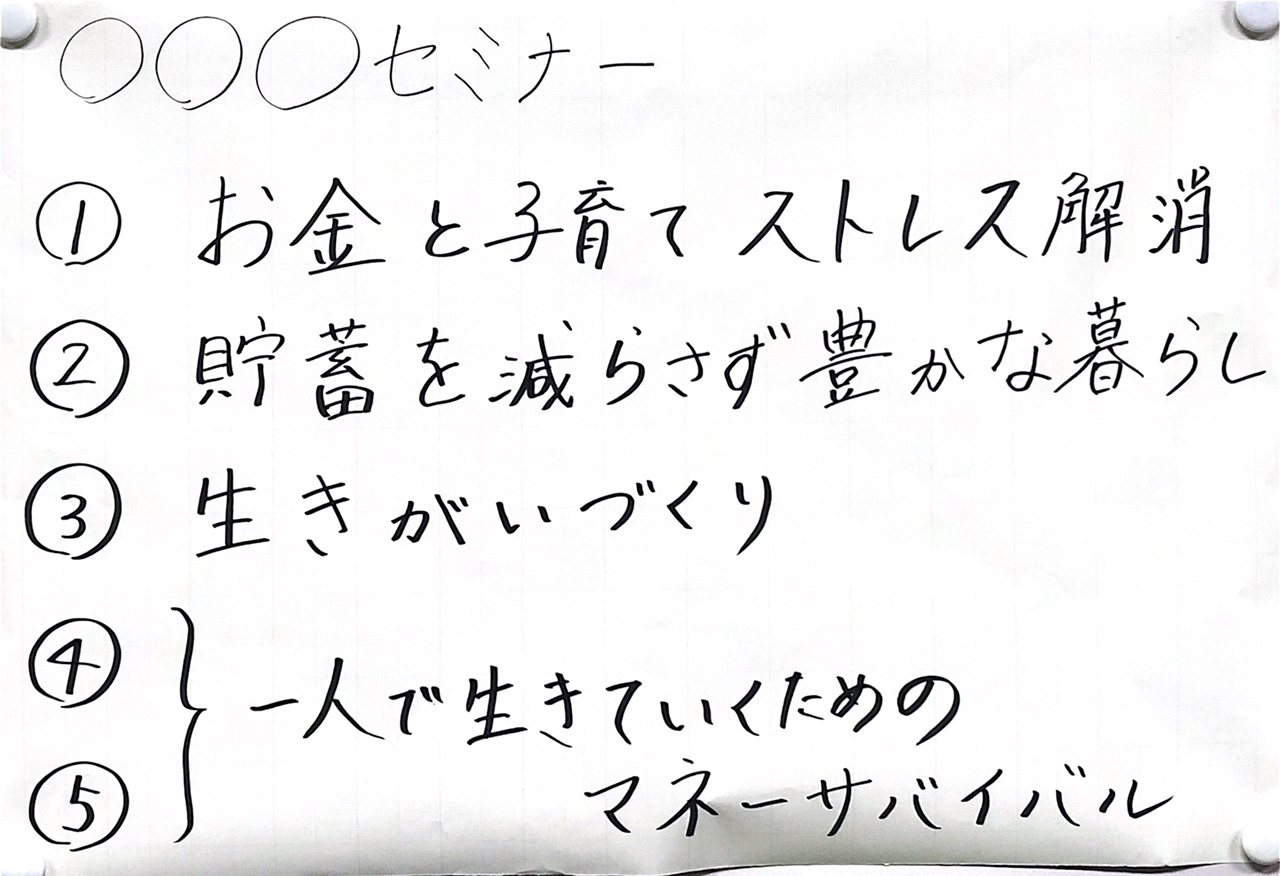 ○○○セミナー
① お金と子育てストレス解消
② 貯蓄を減らさず豊かな暮らし
③ 生きがいづくり
④
⑤
一人で生きていくための
マネーサバイバル